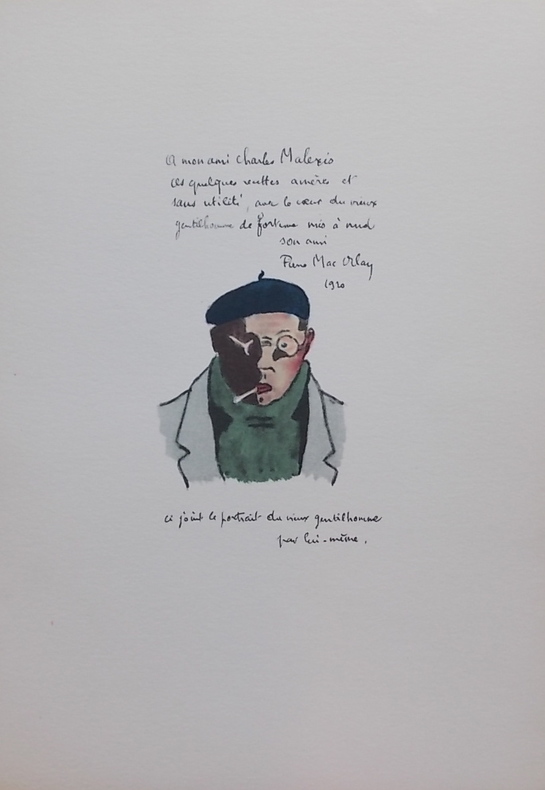 A mon ami Charles Malexis
ces quelques recettes amères et
sans utilité, avec le cœur du vieux
gentilhomme de fortune mis à nud
son ami
Pierre Mac Orlan
1920
ci joint le portrait du vieux gentilhomme
par lui-même.